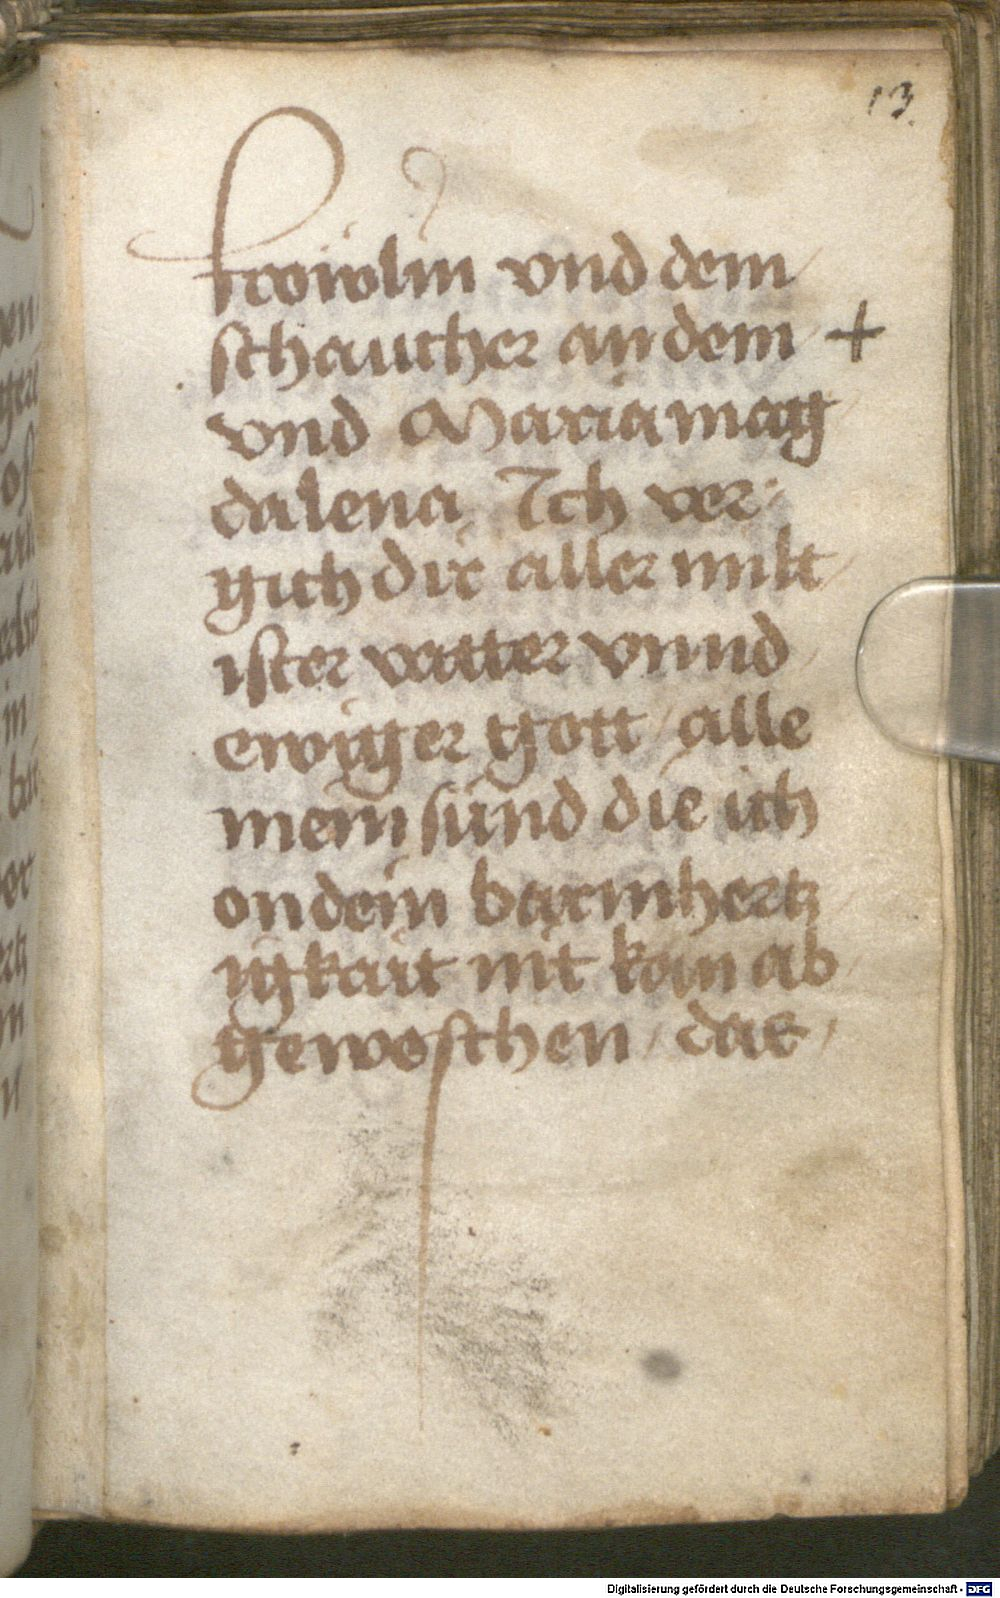 13.
fröwlin vnd dem
schaucher an dem +
vnd Maria mag
dalena Ich ver:
gich dir aller milt
ister vatter vnnd
ewiger gott / alle
mein sünd die ich
on dein barmhertz
igkait nit kan ab
geweschen / das /
Digitalisierung gefördert durch die Deutsche Forschungsgemeinschaft - DFG